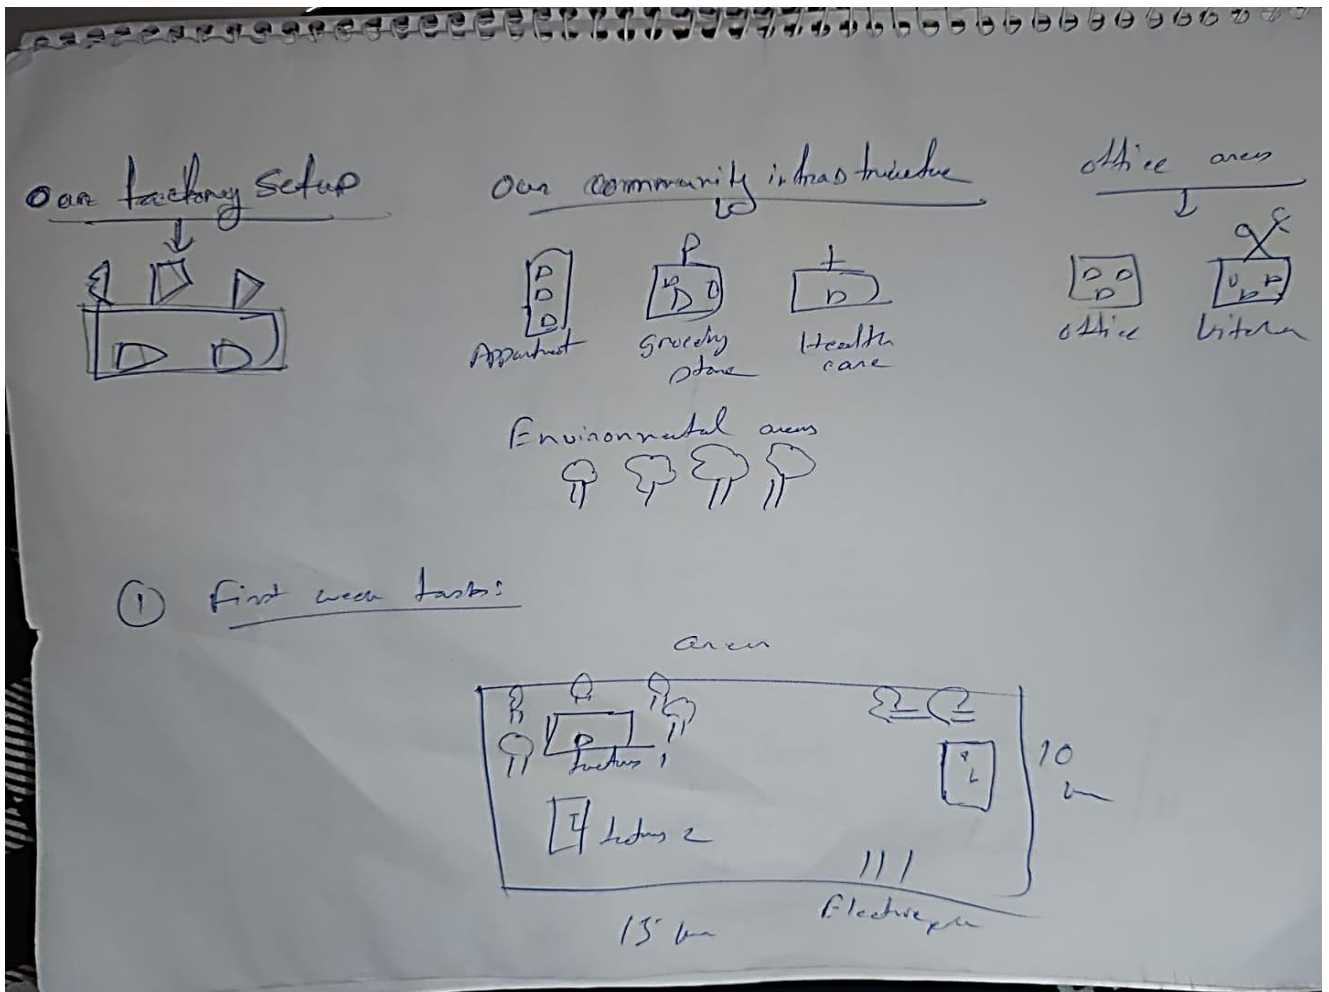 Our factory setup
Our community infrastructure
office areas
Appartment
Grocery
store
Health
care
office
kitchen
Environmental areas
1 First week tasks:
area
factory 1
10
km
factory 2
Electric
15 km